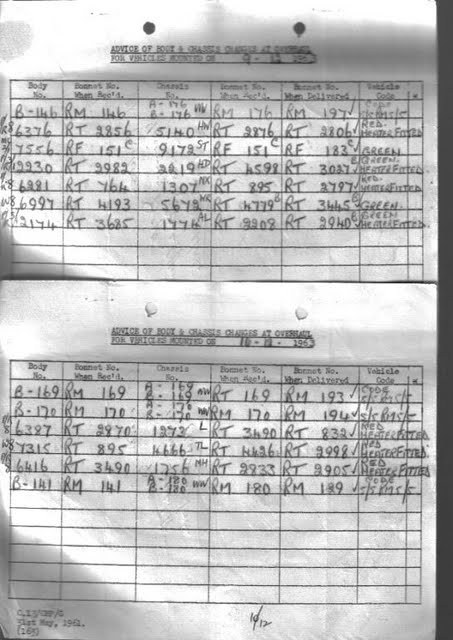 ADVICE OF BODY & CHASSIS CHANGES AT OVERHAUL
FOR VEHICLES MOUNTED ON 9-12 1963
Body No. Bonnet No. When Rec'd. Chassis No. Bonnet No. When Rec'd. Bonnet No. When Delivered Vehicle Code *
B-146 RM 146 A-176 B-176 WW RM 176 RM 197 ✓ CODE
6376 RT 2856 5140 HN RT 2876 RT 2806 ✓ RED. HEATER FITTED
7556 RF 151 C 9172 ST RF 151 C RF 183 C ✓ GREEN
2982 RT 4598 RT 3027 ✓ GREEN. HEATER FITTED
6281 RT 764 1307 NK RT 895 RT 2797 ✓ RED. HEATER FITTED
W8 6997 RT 4193 5672 RT 4779 B RT 3445 B ✓ GREEN.
2174 RT 3685 1774 AL RT 2208 RT 2940 ✓ GREEN HEATER FITTED.
ADVICE OF BODY & CHASSIS CHANGES AT OVERHAUL
FOR VEHICLES MOUNTED ON 10-12- 1963
Body No. Bonnet No. When Rec'd. Chassis No. Bonnet No. When Rec'd. Bonnet No. When Delivered Vehicle Code *
B-169 RM 169 A-169 B-169 WW RT 169 RM 193 ✓ CODE S/S RM5/5
B-170 RM 170 A-170 B-170 WW RM 170 RM 194 ✓ S/S RM5/5
6387 RT 2870 1273 L RT 3490 RT 832 ✓ RED HEATER FITTED
W8 7315 RT 895 4666 TL RT 4426 RT 2998 ✓ RED HEATER FITTED
6416 RT 3490 1756 MH RT 2933 RT 2905 ✓ RED HEATER FITTED
B-141 RM 141 A-180 B-180 WW RM 180 RM 189 ✓ CODE S/S RM5/5
C.13/CMF/G
31st May, 1961.
(165)
10/12